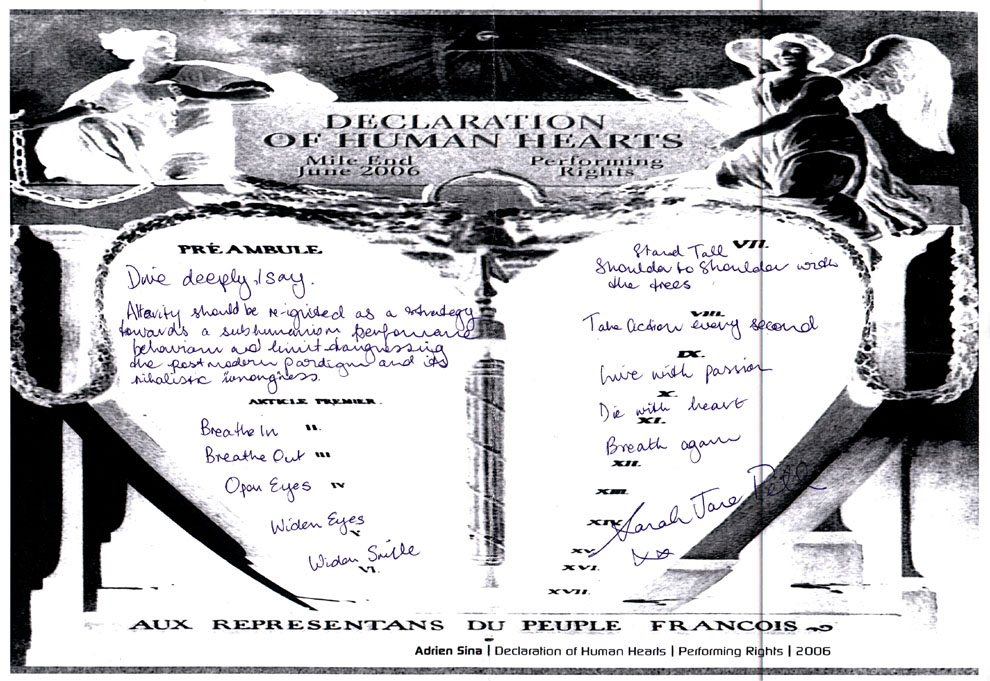 DECLARATION
OF HUMAN HEARTS
Mile End
June 2006
Performing
Rights
PRÉAMBULE
Dive deeply, I say.
Alterity should be re-ignited as a strategy
towards a subhumanism performance
behaviour and limit
the postmodern paradigm and its
nihilistic wrongness.
ARTICLE PREMIER.
Breathe In II.
Breathe Out III
Open Eyes IV
Widen Eyes
V
Widen Smile
VI.
Stand Tall VII.
Shoulder to Shoulder with
the trees
VIII.
Take Action every second
IX.
Live with passion
X.
Die with heart
XI.
Breath again
XII.
XIII.
XIV
Sarah Jane Pell
XV
xx
XVI.
XVII.
AUX REPRESENTANS DU PEUPLE FRANCOIS
Adrien Sina | Declaration of Human Hearts | Performing Rights | 2006